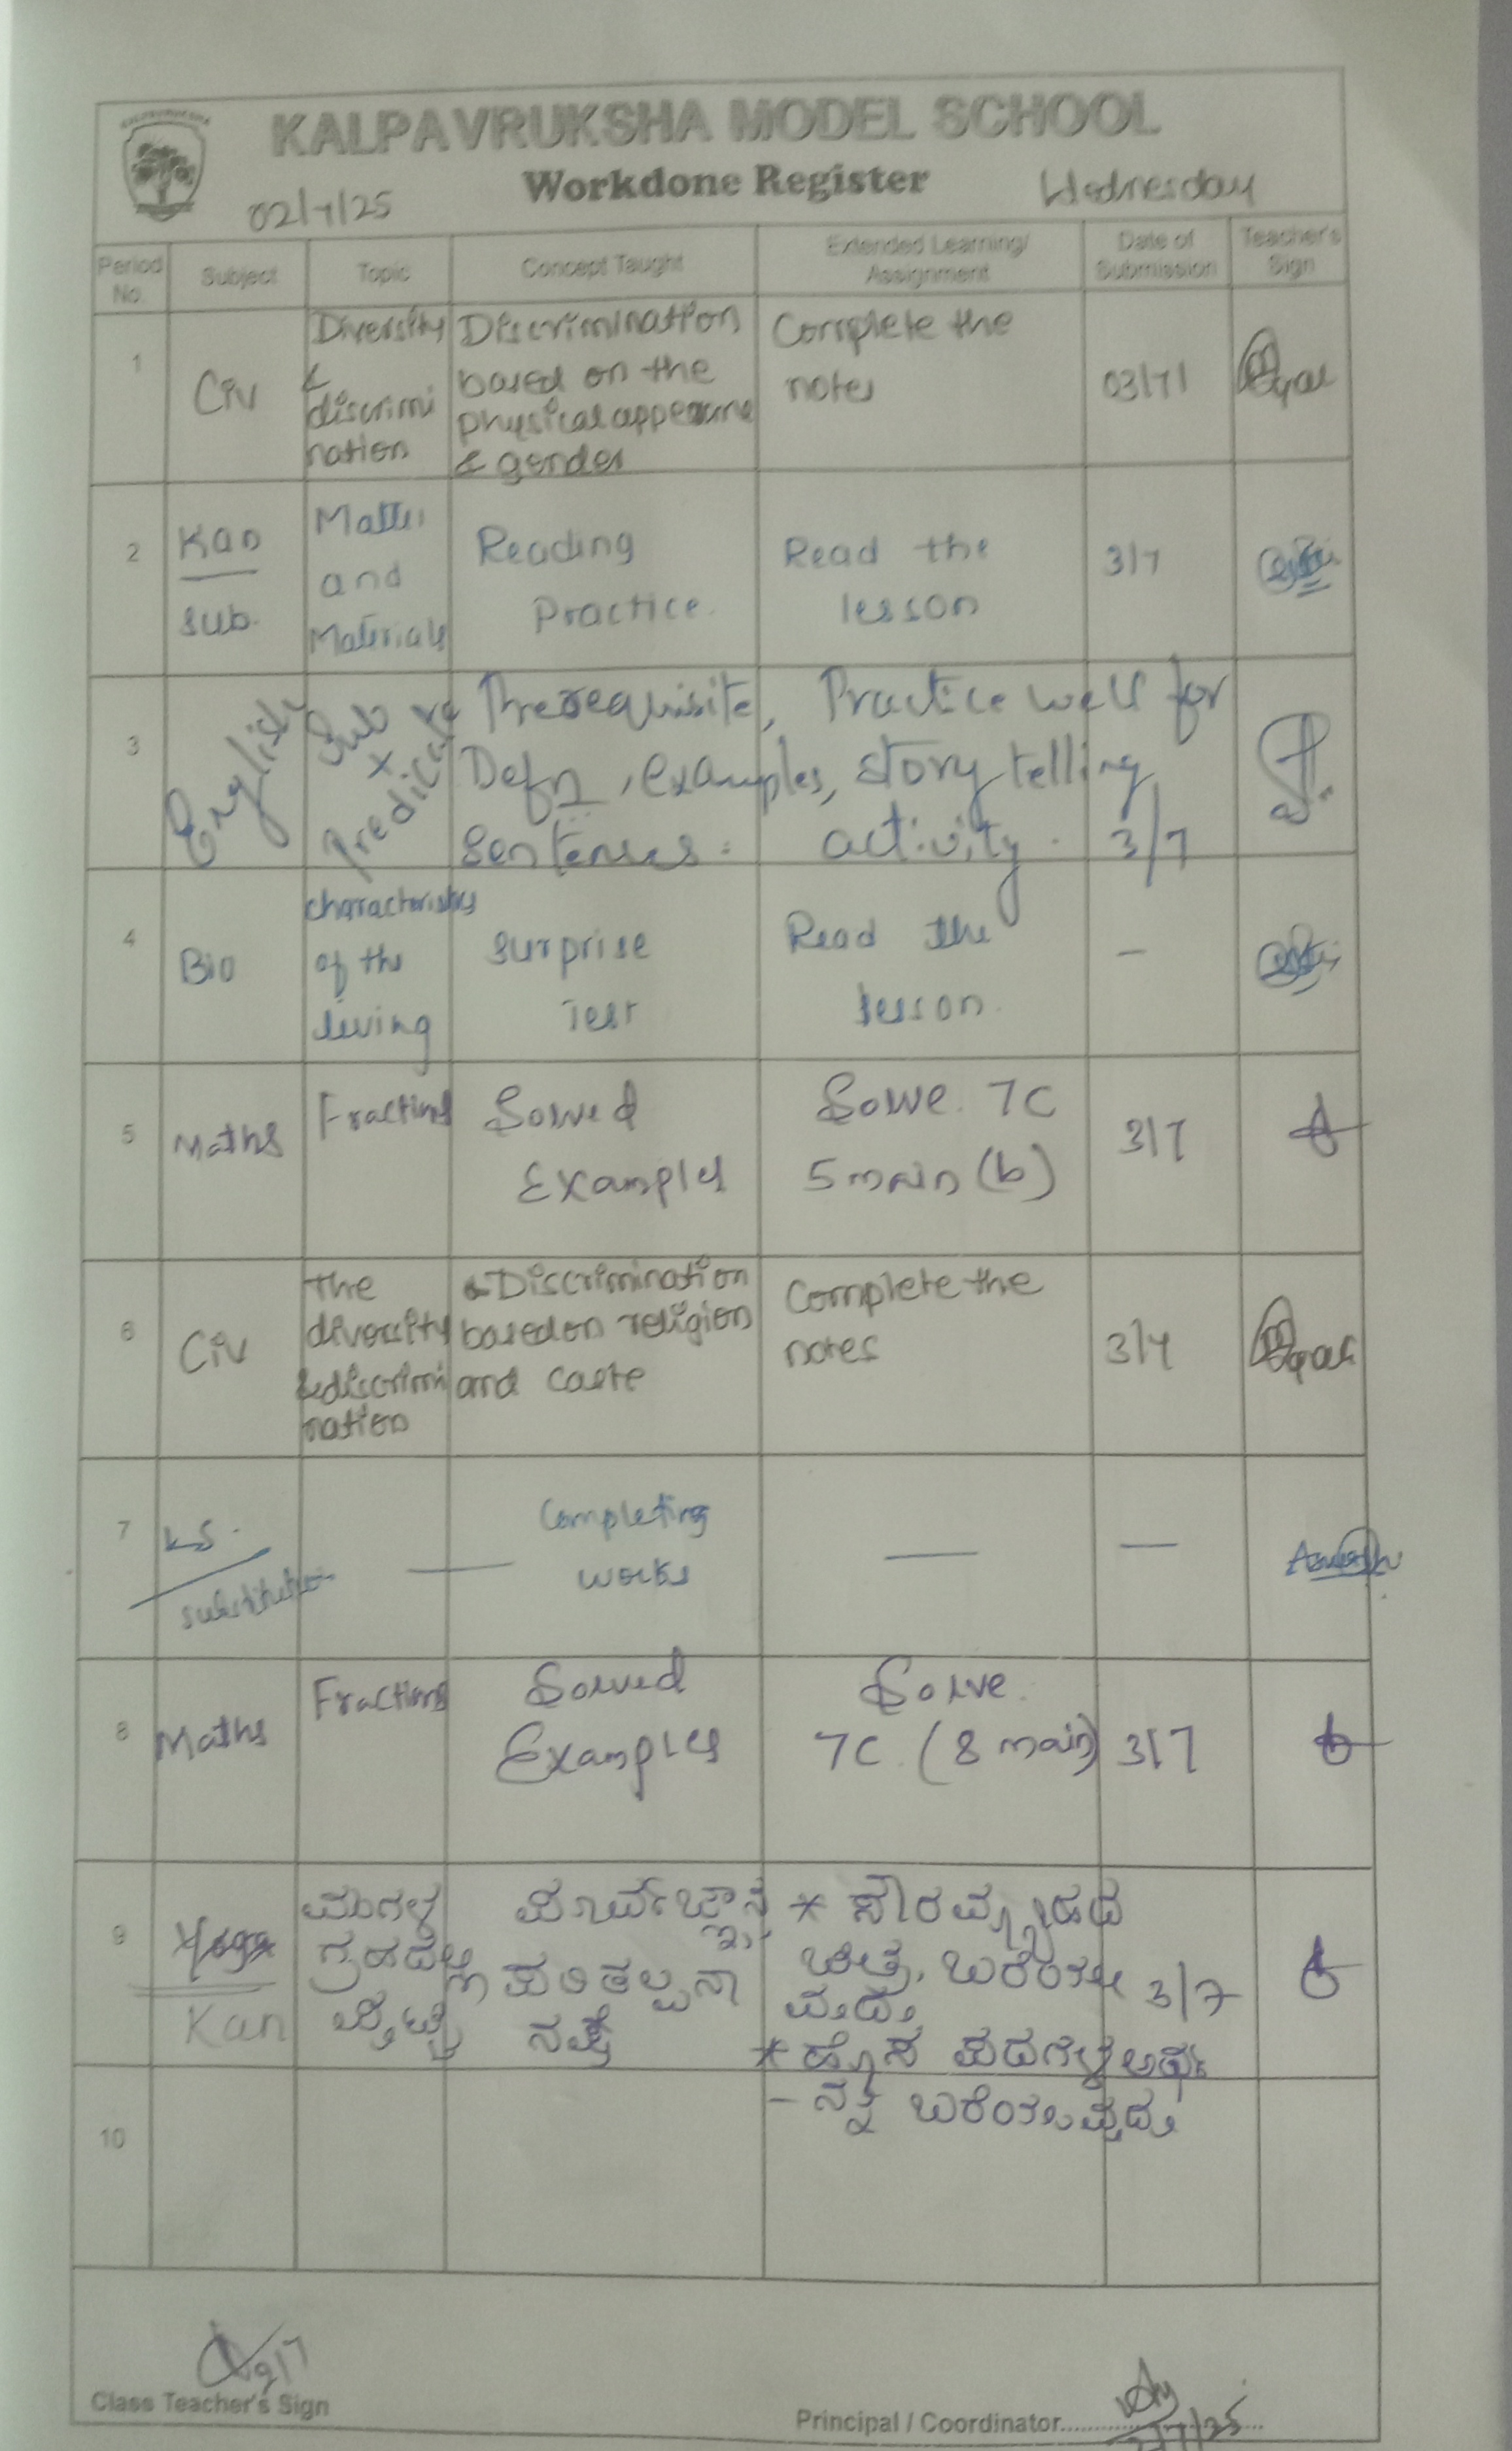 KALPAVRUKSHA MODEL SCHOOL
Workdone Register
02/7/25
Wednesday
Period No.
Subject
Topic
Concept Taught
Extended Learning/ Assignment
Date of Submission
Teacher's Sign
1
Civ
Diversity
&
discrimi
nation
Discrimination
based on the
physical appearance
& gender
Complete the
notes
03/7/
2
Kan
Sub.
Matter
and
Materials
Reading
Practice.
Read the
lesson
3/7
3
English
Sub
Predicate
Prerequisite,
Defn, examples,
Sentences.
Practice well for
story telling
activity.
3/7
4
Bio
characteristics
of the
living
Surprise
Test
Read the
lesson.
—
5
Maths
Fractions
Solved
Examples
Solve. 7C
5 main (b)
3/7
6
Civ
The
diversity
&discrimi
nation
Discrimination
based on religion
and caste
Complete the
notes
3/7
7
substitution
—
Completing
works
—
—
8
Maths
Fractions
Solved
Examples
Solve.
7C. (8 main)
3/7
9
Yoga
Kan
ಮಂಗಳ
ಗ್ರಹದಲ್ಲಿ
ಪರಿಕಲ್ಪನಾ
ನಕ್ಷೆ
* ಸೌರವ್ಯೂಹದ
ಚಿತ್ರ ಬರೆಯು
3/7
* ಹೊಸ ಪದಗಳ ಅರ್ಥ
10
Class Teacher's Sign
Principal / Coordinator